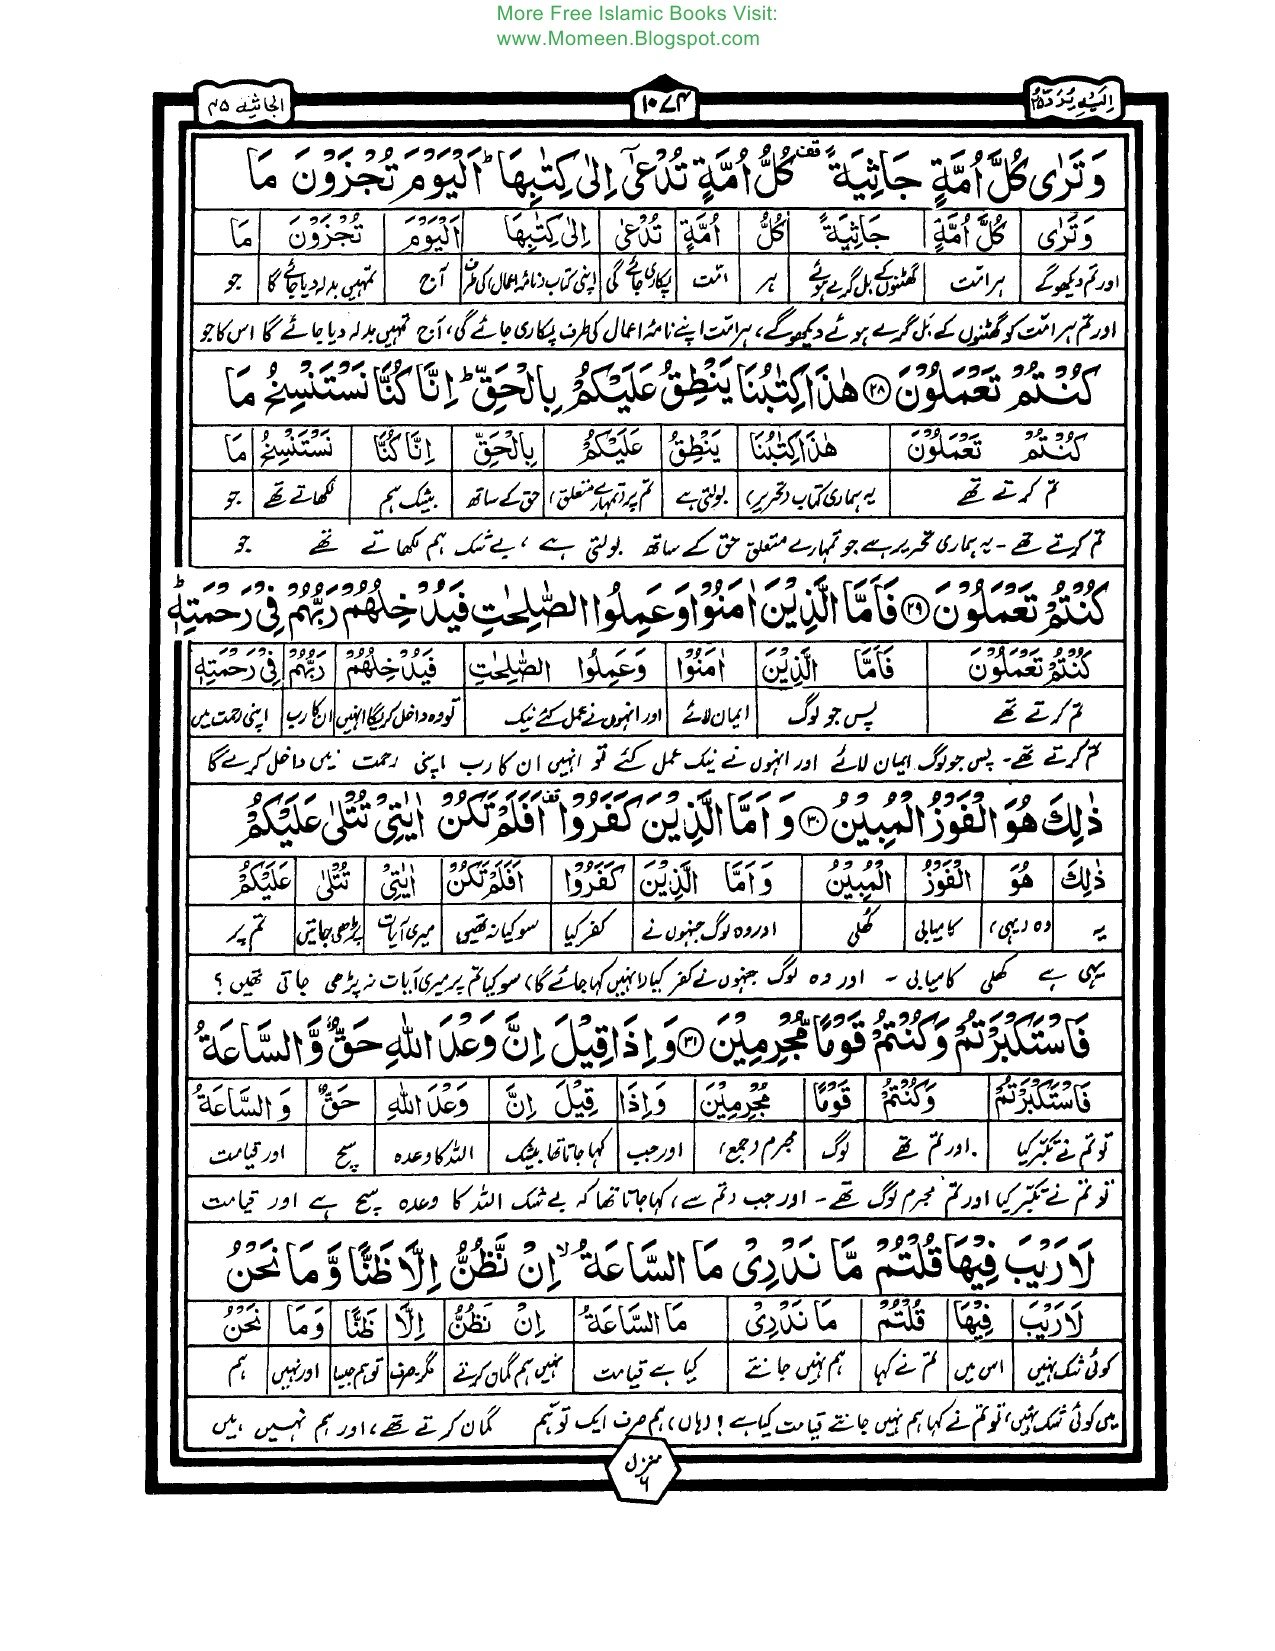 More Free Islamic Books Visit:
www.Momeen.Blogspot.com
اِلَیْهِ یُرَدُّ ۲۵
۱۰۷۴
الجاثية ۴۵
وَتَرٰى كُلَّ اُمَّةٍ جَاثِيَةً ۫ كُلُّ اُمَّةٍ تُدْعٰٓى اِلٰى كِتٰبِهَا ؕ اَلْيَوْمَ تُجْزَوْنَ مَا
وَتَرٰى كُلَّ اُمَّةٍ جَاثِيَةً كُلُّ اُمَّةٍ تُدْعٰٓى اِلٰى كِتٰبِهَا اَلْيَوْمَ تُجْزَوْنَ مَا
اور تم دیکھوگے ہر امت گھٹنوں کے بل گرے ہوئے ہر امت پکاری جائے گی اپنی کتاب (نامۂ اعمال) کی طرف آج تمہیں بدلہ دیا جائے گا جو
اور تم ہر امت کو گھٹنوں کے بَل گرے ہوئے دیکھوگے، ہر امت اپنے نامۂ اعمال کی طرف پکاری جائے گی، آج تمہیں بدلہ دیا جائے گا اس کا جو
كُنْتُمْ تَعْمَلُوْنَ ۲۸ هٰذَا كِتٰبُنَا يَنْطِقُ عَلَيْكُمْ بِالْحَقِّ ؕ اِنَّا كُنَّا نَسْتَنْسِخُ مَا
كُنْتُمْ تَعْمَلُوْنَ هٰذَا كِتٰبُنَا يَنْطِقُ عَلَيْكُمْ بِالْحَقِّ اِنَّا كُنَّا نَسْتَنْسِخُ مَا
تم کرتے تھے یہ ہماری کتاب (تحریر) بولتی ہے تم پر (تمہارے متعلق) حق کے ساتھ بیشک ہم لکھاتے تھے جو
تم کرتے تھے - یہ ہماری تحریر ہے جو تمہارے متعلق حق کے ساتھ بولتی ہے، بے شک ہم لکھاتے تھے جو
كُنْتُمْ تَعْمَلُوْنَ ۲۹ فَاَمَّا الَّذِيْنَ اٰمَنُوْا وَعَمِلُوا الصّٰلِحٰتِ فَيُدْخِلُهُمْ رَبُّهُمْ فِيْ رَحْمَتِهٖ ؕ
كُنْتُمْ تَعْمَلُوْنَ فَاَمَّا الَّذِيْنَ اٰمَنُوْا وَعَمِلُوا الصّٰلِحٰتِ فَيُدْخِلُهُمْ رَبُّهُمْ فِيْ رَحْمَتِهٖ
تم کرتے تھے پس جو لوگ ایمان لائے اور انہوں نے عمل کئے نیک تو وہ داخل کریگا انہیں ان کا رب اپنی رحمت میں
تم کرتے تھے - پس جو لوگ ایمان لائے اور انہوں نے نیک عمل کئے تو انہیں ان کا رب اپنی رحمت میں داخل کرے گا
ذٰلِكَ هُوَ الْفَوْزُ الْمُبِيْنُ ۳۰ وَاَمَّا الَّذِيْنَ كَفَرُوْا ۫ اَفَلَمْ تَكُنْ اٰيٰتِيْ تُتْلٰى عَلَيْكُمْ
ذٰلِكَ هُوَ الْفَوْزُ الْمُبِيْنُ وَاَمَّا الَّذِيْنَ كَفَرُوْا اَفَلَمْ تَكُنْ اٰيٰتِيْ تُتْلٰى عَلَيْكُمْ
یہ وہ (یہی) کامیابی کُھلی اور وہ لوگ جنہوں نے کفر کیا سو کیا نہ تھیں میری آیات پڑھی جاتیں تم پر
یہی ہے کُھلی کامیابی - اور وہ لوگ جنہوں نے کفر کیا (انہیں کہا جائے گا) سو کیا تم پر میری آیات نہ پڑھی جاتی تھیں؟
فَاسْتَكْبَرْتُمْ وَكُنْتُمْ قَوْمًا مُّجْرِمِيْنَ ۳۱ وَاِذَا قِيْلَ اِنَّ وَعْدَ اللّٰهِ حَقٌّ وَّالسَّاعَةُ
فَاسْتَكْبَرْتُمْ وَكُنْتُمْ قَوْمًا مُجْرِمِيْنَ وَاِذَا قِيْلَ اِنَّ وَعْدَ اللّٰهِ حَقٌّ وَالسَّاعَةُ
تو تم نے تکبّر کیا اور تم تھے لوگ مجرم (جمع) اور جب کہا جاتا تھا بیشک اللہ کا وعدہ سچ اور قیامت
تو تم نے تکبّر کیا اور تم مجرم لوگ تھے - اور جب (تم سے) کہا جاتا تھا کہ بے شک اللہ کا وعدہ سچ ہے اور قیامت
لَا رَيْبَ فِيْهَا قُلْتُمْ مَّا نَدْرِيْ مَا السَّاعَةُ ۙ اِنْ نَّظُنُّ اِلَّا ظَنًّا وَّمَا نَحْنُ
لَا رَيْبَ فِيْهَا قُلْتُمْ مَا نَدْرِيْ مَا السَّاعَةُ اِنْ نَظُنُّ اِلَّا ظَنًّا وَمَا نَحْنُ
کوئی شک نہیں اس میں تم نے کہا ہم نہیں جانتے کیا ہے قیامت نہیں ہم گمان کرتے مگر۔صرف توہم جیسا اور نہیں ہم
میں کوئی شک نہیں، تو تم نے کہا ہم نہیں جانتے قیامت کیا ہے! (ہاں) ہم صرف ایک توہّم گمان کرتے تھے، اور ہم نہیں ہیں
منزل ۶